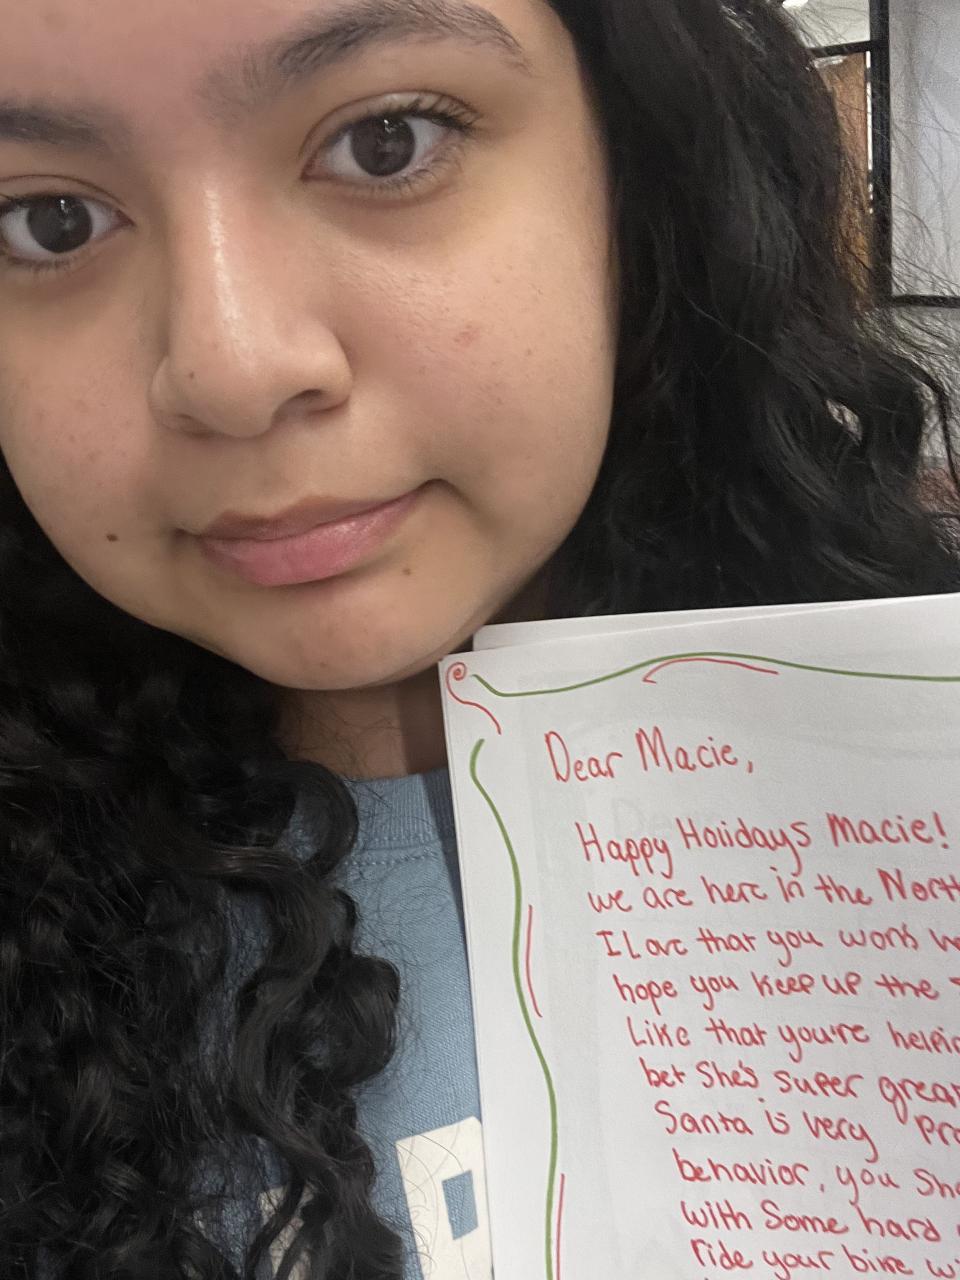 Dear Macie,
Happy Holidays Macie!
we are here in the
I Love that you work
hope you keep up the
Like that you're
bet she's super
Santa is very
behavior, you
with some hard
ride your bike